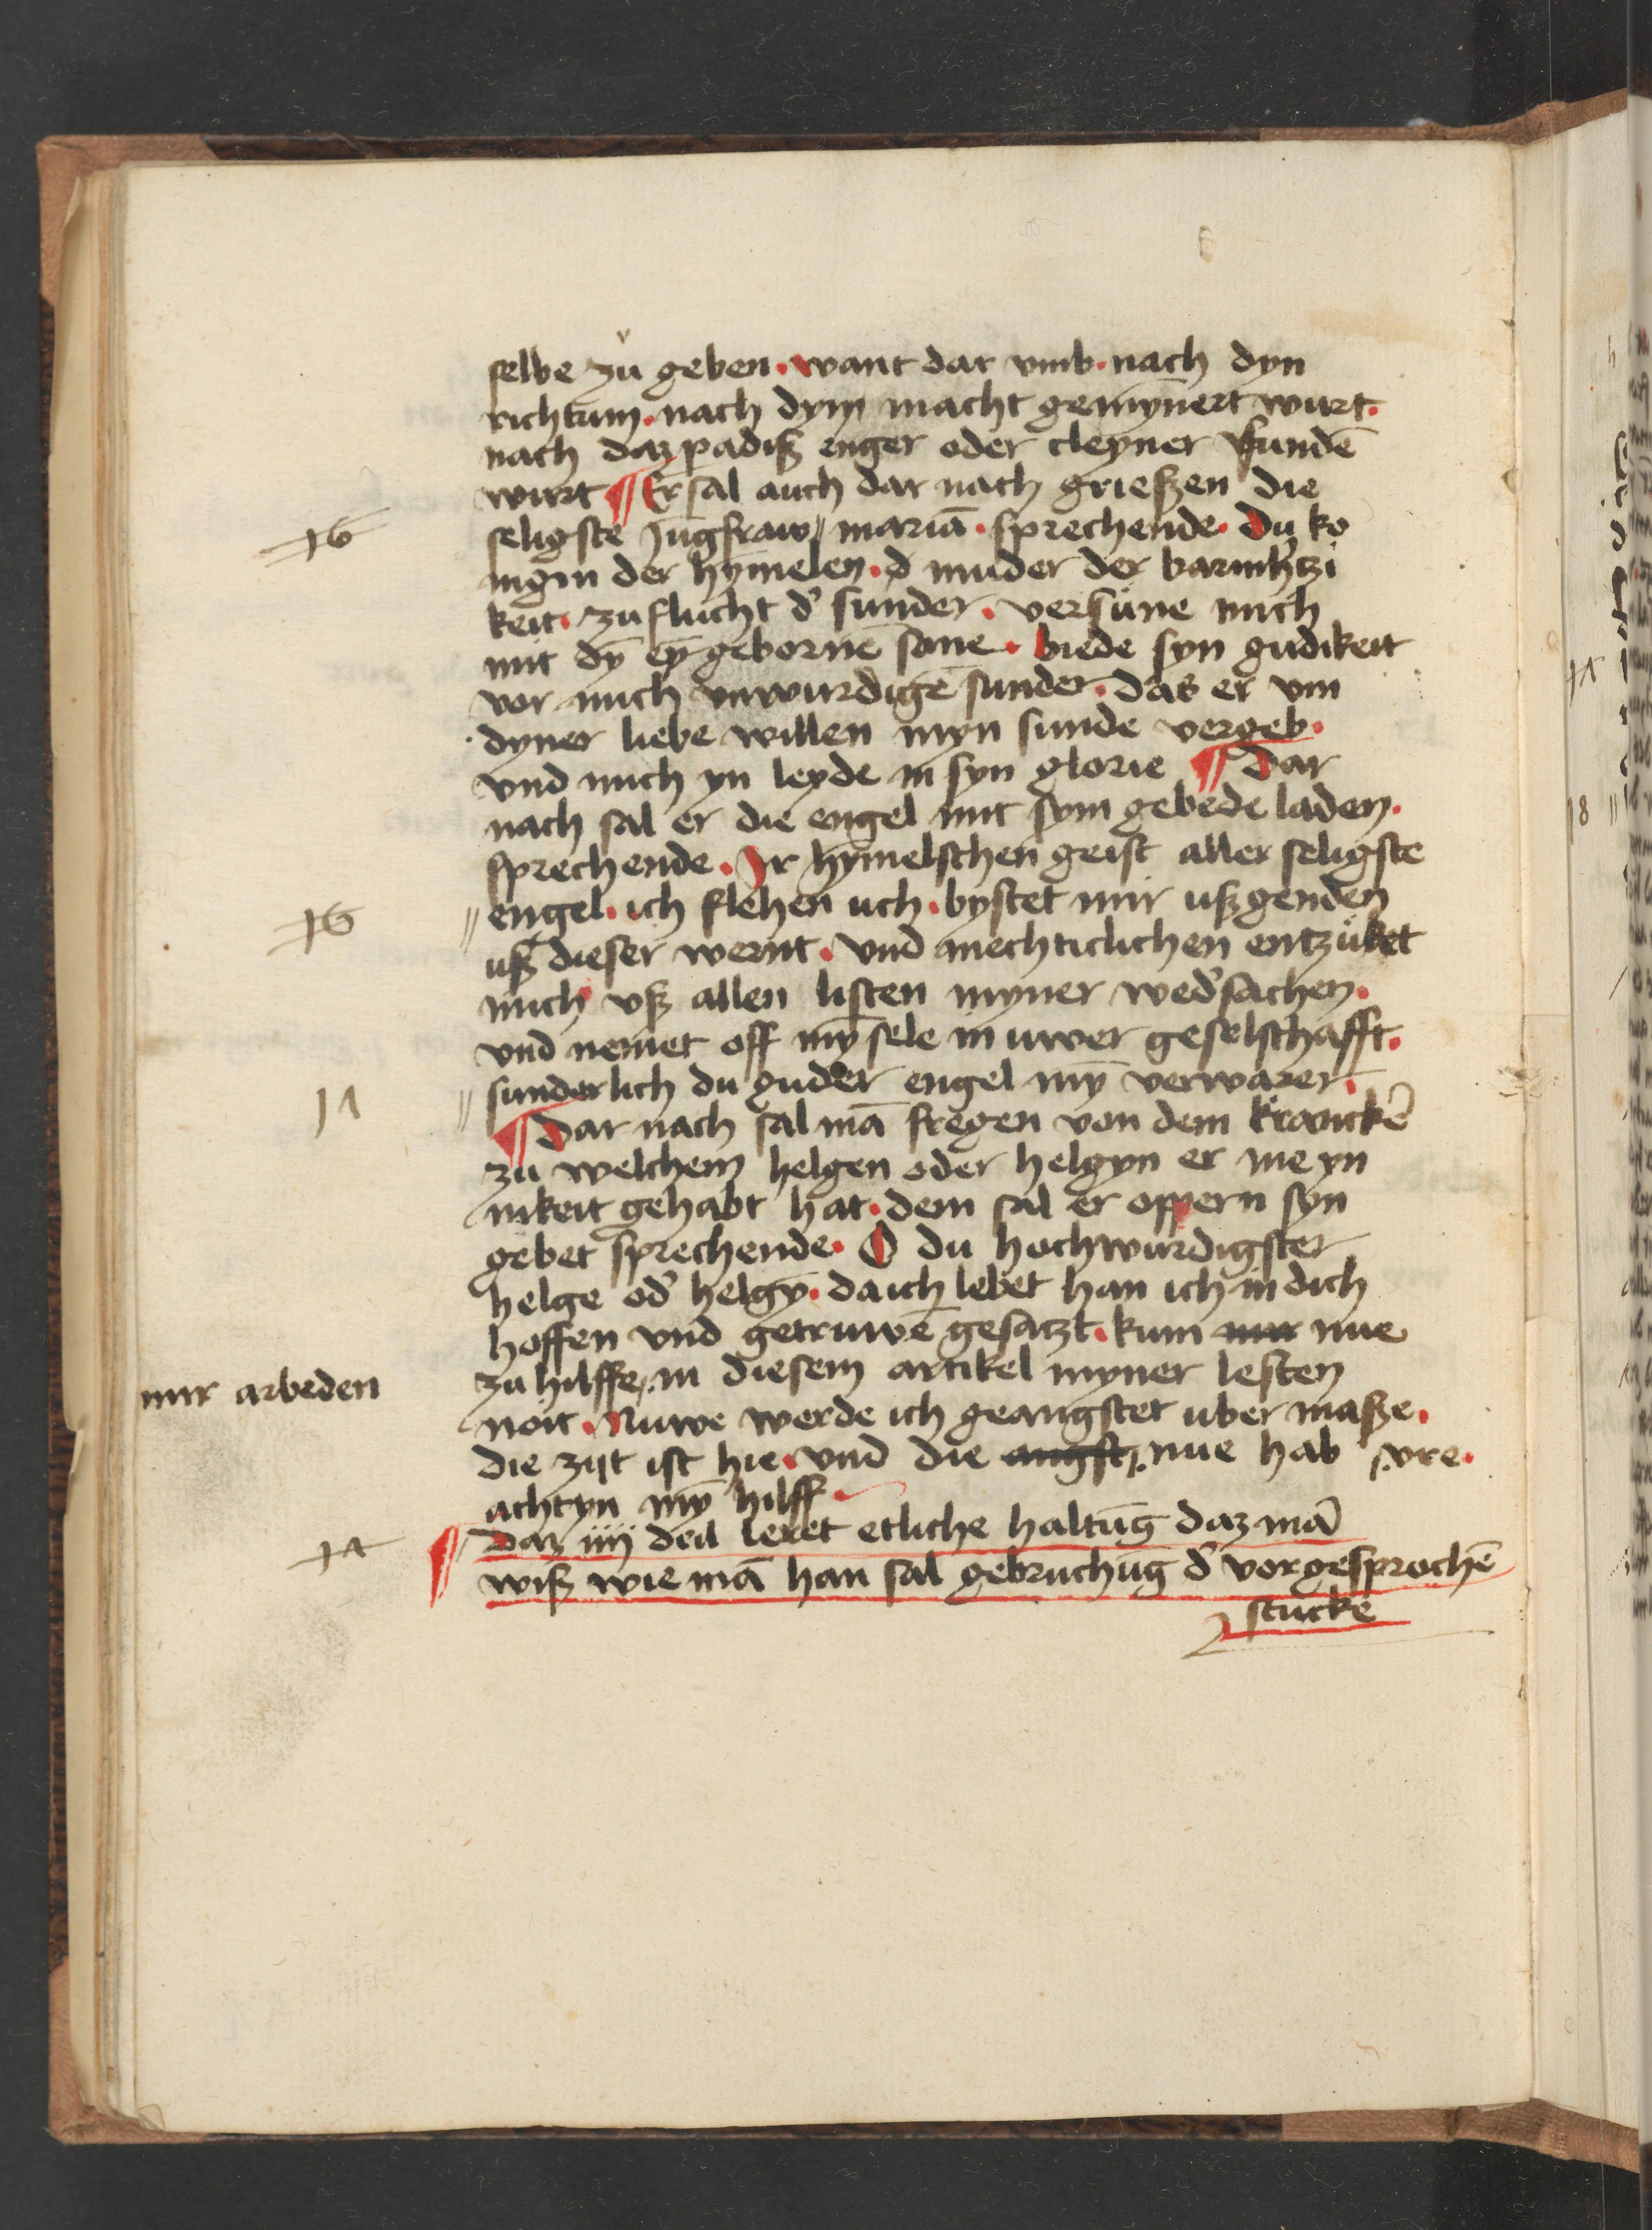 selbe zů geben · want dar vmb · nach dyn
richtum · nach dym macht gemȳnert wurt ·
nach daz padiß enger oder cleyner funde̅
wurt ¶ Er sal auch dar nach grießen die
16
seligste Jūgfraw // mariā · sprechende · Du ko
nigin der hȳmelen · d muder der barmh'tzi
keit · zuflucht d' sunder · versüne mich
mit dȳ eȳ geborne̅ sone · biede syn gudikeit
vor mich vnwurdige̅ sunder · das er vm
dyner liebe willen myn sunde vergeb ·
vnd mich yn leyde in syn glorie ¶ Dar
nach sal er die engel mit sym gebede laden ·
sprechende · Ir hymelschen geist aller seligste
16
// engel · ich flehen uch · bystet mir ußgenden
uß dieser wernt · vnd mechticlichen entzüket
mich vß allen listen myner wed'sachen ·
vnd nemet off mȳ sele in uwer geselschafft ·
17
// sunderlich du guder engel mȳ verwarer ·
¶ Dar nach sal mā fregen von dem krancke̅
zu welchem helgen oder helgyn er me yn
nikeit gehabt hat · dem sal er oppern syn
gebet sprechende · O du hochwurdigster
helge od' helgȳ · da ich lebet han ich in dich
hoffen vnd getruwe̅ gesatzt · kum mir nue
mir arbeden
zu hilffe /. in diesem artikel myner lesten
noit · Nuwe werde ich geangstet uber maße ·
die zijt ist hie · vnd die angst /. nue hab /. vre ·
acht yn mȳ hilff ·
17
¶ Daz iiij deil leret etliche haltūg daz mā
wiß wie mā han sal gebruchūg d' vorgesproche̅
stucke